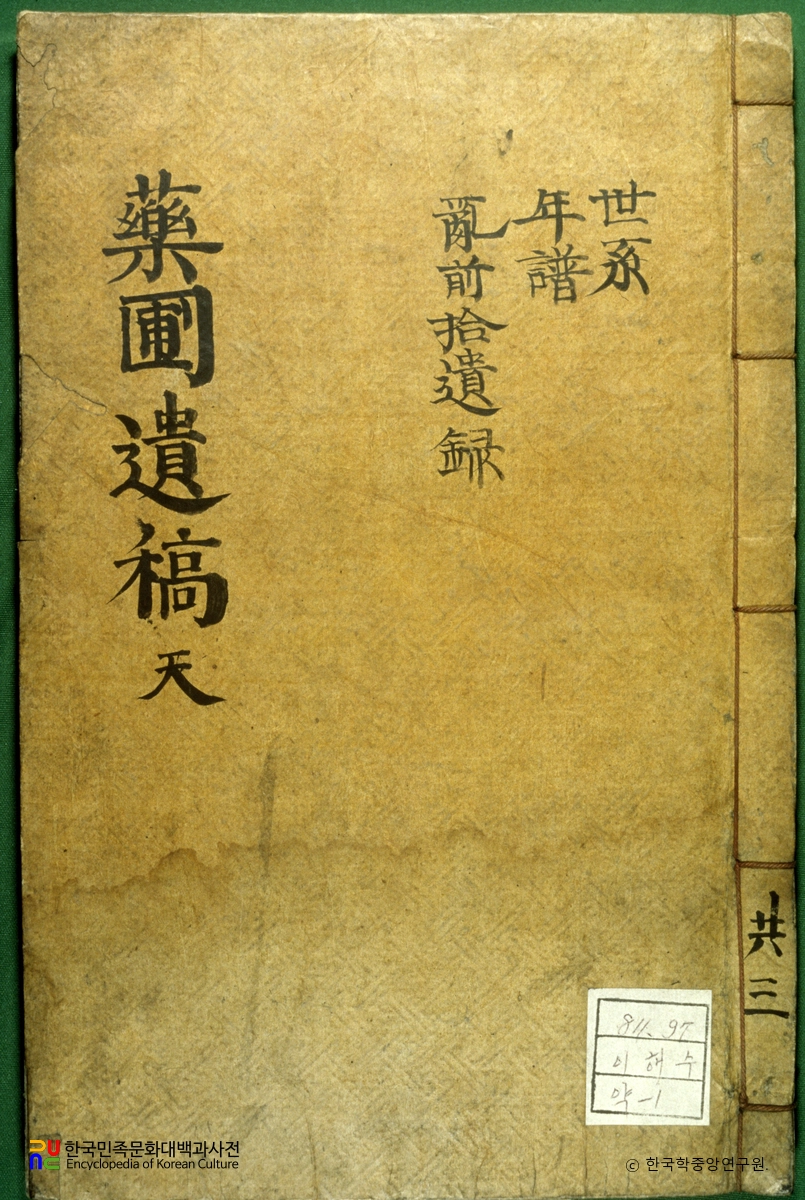 世系
年譜
亂前拾遺録
藥圃遺稿 天
共三
811.97
이해수
약-1
한국민족문화대백과사전
Encyclopedia of Korean Culture
© 한국학중앙연구원